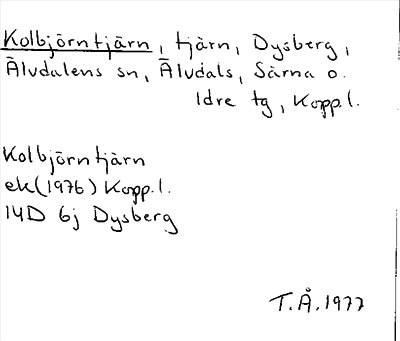 Kolbjörntjärn, tjärn, Dysberg,
Älvdalens sn, Älvdals, Särna o.
Idre tg, Kopp.l.
Kolbjörntjärn
ek(1976) Kopp.l.
14D 6j Dysberg
T.Å.1977